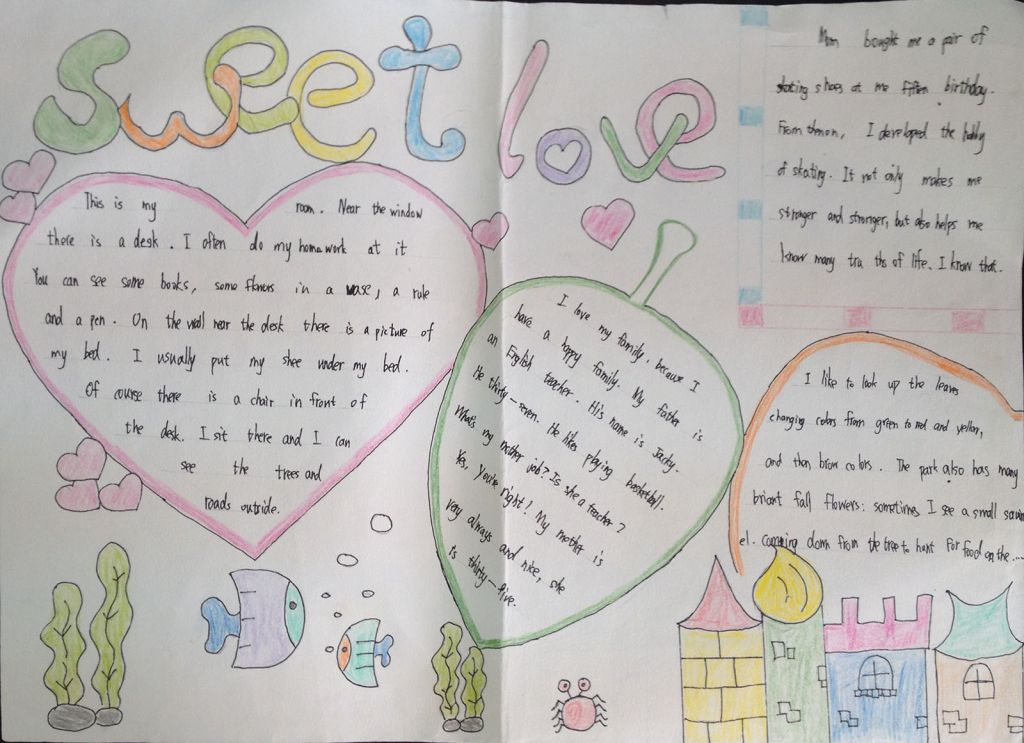 sweet love
This is my room. Near the window
there is a desk. I often do my homework at it
You can see some books, some flowers in a vase, a rule
and a pen. On the wall near the desk there is a picture of
my bed. I usually put my shee under my bed.
Of course there is a chair in front of
the desk. I sit there and I can
see the trees and
roads outside.
I love my family, because I
have a happy family. My father is
an English teacher. His name is Jacky.
He thirty-seven. He likes playing basketball.
What's my mother job? Is she a teacher?
Yes, you're right! My mother is
very always and nice, she
is thirty-five.
Mom bought me a pair of
skating shoes at me birthday.
From then on, I developed the hobby
of skating. It not only makes me
stronger and stronger, but also helps me
know many tru ths of life. I know that.
I like to look up the leaves
changing colors from green to red and yellow,
and then brow colors. The park also has many
briant fall flowers: sometimes I see a small
el. coming down from the tree to hunt for food on the....